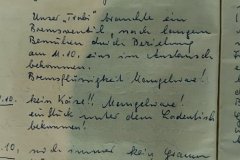 Unser „Trabi“ brauchte ein
Bremsventil, nach langem
Bemühen durch Beziehung
am 14.10. eins im Austausch
bekommen.
Bremsflüssigkeit Mangelware!
.10. kein Käse!! Mangelware!
ein Stück unter dem Ladentisch
bekommen!
.10. noch immer kein